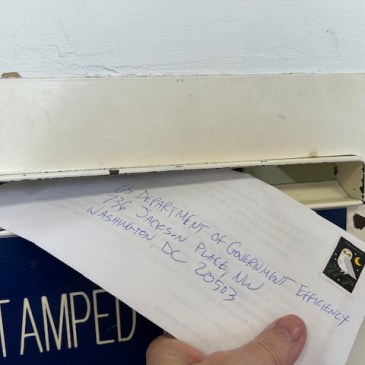 US DEPARTMENT OF GOVERNMENT EFFICIENCY
736 JACKSON PLACE, NW
WASHINGTON DC 20503
TAMPED